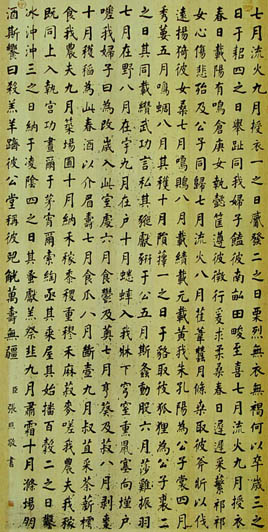 七月流火九月授衣一之日觱發二之日栗烈無衣無褐何以卒歲三之
日于耜四之日舉趾同我婦子饁彼南畝田畯至喜七月流火九月授衣
春日載陽有鳴倉庚女執懿筐遵彼微行爰求柔桑春日遲遲采蘩祁祁
女心傷悲殆及公子同歸七月流火八月萑葦蠶月條桑取彼斧斨以伐
遠揚猗彼女桑七月鳴鵙八月載績載玄載黃我朱孔陽為公子裳四月
秀葽五月鳴蜩八月其穫十月隕蘀一之日于貉取彼狐狸為公子裘二
之日其同載纘武功言私其豵獻豜于公五月斯螽動股六月莎雞振羽
七月在野八月在宇九月在戶十月蟋蟀入我牀下穹窒熏鼠塞向墐戶
嗟我婦子曰為改歲入此室處六月食鬱及薁七月亨葵及菽八月剝棗
十月穫稻為此春酒以介眉壽七月食瓜八月斷壺九月叔苴采荼薪樗
食我農夫九月築場圃十月納禾稼黍稷重穋禾麻菽麥嗟我農夫我稼
既同上入執宮功晝爾于茅宵爾索綯亟其乘屋其始播百穀二之日鑿
冰沖沖三之日納于凌陰四之日其蚤獻羔祭韭九月肅霜十月滌場朋
酒斯饗曰殺羔羊躋彼公堂稱彼兕觥萬壽無疆
臣張照敬書